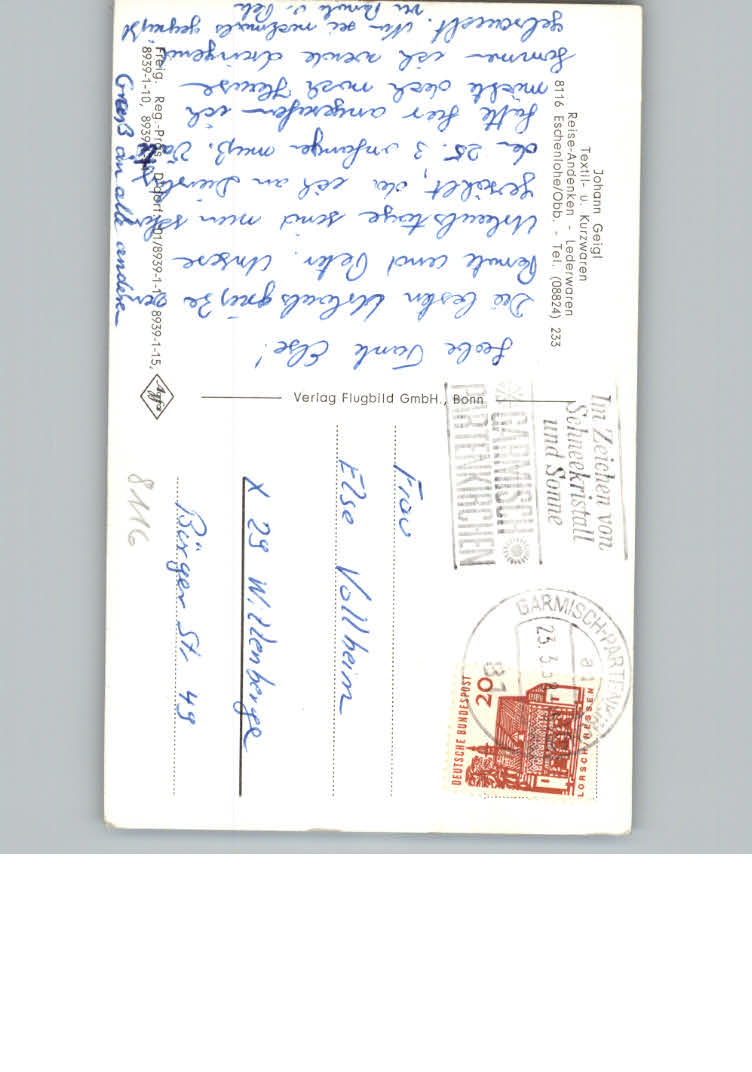 Johann Geigl
Textil- u. Kurzwaren
Reise-Andenken - Lederwaren
8116 Eschenlohe/Obb. - Tel. (08824) 233
Liebe Tante Else!
Die besten Urlaubsgrüße von
Renate und Peter. Unsere
Urlaubstage sind nun schon
gezählt, da ich am Dienst
den 25. 3 anfangen muß.
hatte hier angerufen ich
möchte doch nach Hause
kommen ich werde dringend
gebraucht. Nun sei nochmals gegrüßt
von Renate u. Peter
Gruß an alle anderen
Freig. Reg.-Präs. D'dorf
8939-1-10, 8939-1-15,
Verlag Flugbild GmbH., Bonn
Agfa
Im Zeichen von
Schneekristall
und Sonne
GARMISCH
PARTENKIRCHEN
GARMISCH-PARTENK
23.3
81
DEUTSCHE BUNDESPOST
20
LORSCH/HESSEN
Frau
Else Vollheim
X 29 Wittenberge
Bürger Str 49
8116